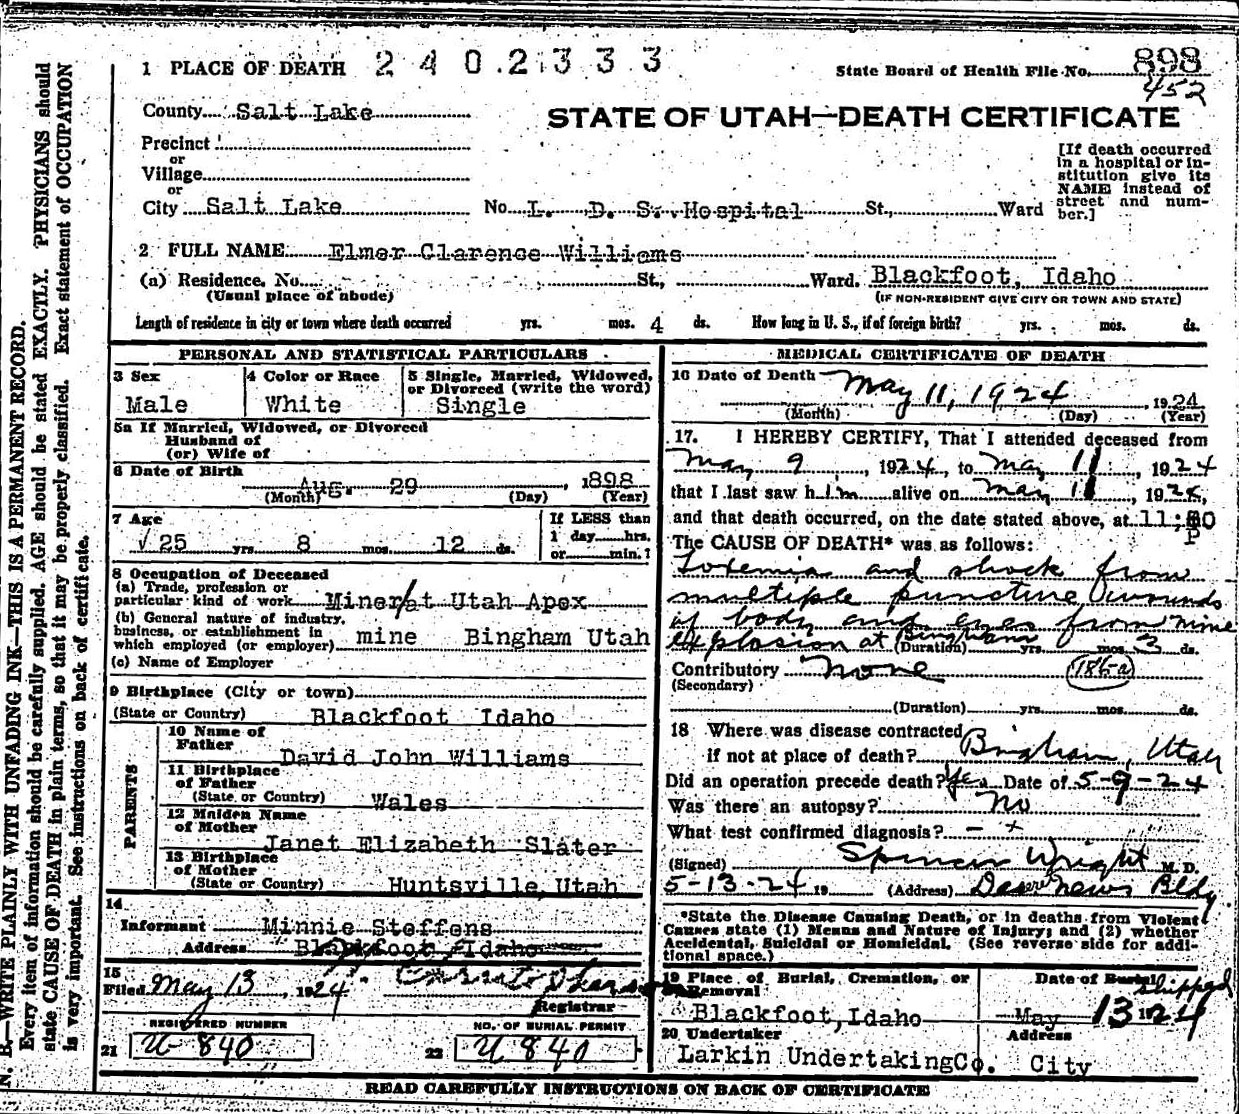 N. B.—WRITE PLAINLY WITH UNFADING INK—THIS IS A PERMANENT RECORD.
Every item of information should be carefully supplied. AGE should be stated EXACTLY. PHYSICIANS should
state CAUSE OF DEATH in plain terms, so that it may be properly classified. Exact statement of OCCUPATION
is very important. See instructions on back of certificate.
1 PLACE OF DEATH 2 4 0 2 3 3 3
State Board of Health File No. 898
452
County Salt Lake
STATE OF UTAH—DEATH CERTIFICATE
Precinct
or
Village
or
City Salt Lake No. L. D. S. Hospital St., Ward
[If death occurred
in a hospital or in-
stitution give its
NAME instead of
street and num-
ber.]
2 FULL NAME Elmer Clarence Williams
(a) Residence. No. St., Ward. Blackfoot, Idaho
(Usual place of abode) (IF NON-RESIDENT GIVE CITY OR TOWN AND STATE)
Length of residence in city or town where death occurred yrs. mos. 4 ds. How long in U. S., if of foreign birth? yrs. mos. ds.
PERSONAL AND STATISTICAL PARTICULARS
3 Sex
Male
4 Color or Race
White
5 Single, Married, Widowed,
or Divorced (write the word)
Single
5a If Married, Widowed, or Divorced
Husband of
(or) Wife of
6 Date of Birth
Aug. 29 , 1898
(Month) (Day) (Year)
7 Age
25 yrs. 8 mos. 12 ds.
If LESS than
1 day hrs.
or min.?
8 Occupation of Deceased
(a) Trade, profession or
particular kind of work Miner at Utah Apex
(b) General nature of industry,
business, or establishment in
which employed (or employer) mine Bingham Utah
(c) Name of Employer
9 Birthplace (City or town)
(State or Country) Blackfoot Idaho
PARENTS
10 Name of
Father David John Williams
11 Birthplace
of Father
(State or Country) Wales
12 Maiden Name
of Mother
Janet Elizabeth Slater
13 Birthplace
of Mother
(State or Country) Huntsville, Utah
14
Informant Minnie Steffens
Address Blackfoot, Idaho
15
Filed May 13, 1924
Registrar
REGISTERED NUMBER
21 U 840
NO. OF BURIAL PERMIT
22 U 840
MEDICAL CERTIFICATE OF DEATH
16 Date of Death May 11, 1924 , 1924
(Month) (Day) (Year)
17. I HEREBY CERTIFY, That I attended deceased from
May 9 , 1924, to May 11 , 1924
that I last saw him alive on May 11 , 1924,
and that death occurred, on the date stated above, at 11:50
P
The CAUSE OF DEATH* was as follows:
Toxemia and shock from
multiple puncture wounds
of body and eyes from mine
explosion at Bingham (Duration) yrs. mos. 3 ds.
Contributory None
(Secondary) 186a
(Duration) yrs. mos. ds.
18 Where was disease contracted
if not at place of death? Bingham, Utah
Did an operation precede death? Yes Date of 5-9-24
Was there an autopsy? No
What test confirmed diagnosis? - +
(Signed) Spencer Wright M. D.
5-13-24 19 (Address) Deseret News Bldg
*State the Disease Causing Death, or in deaths from Violent
Causes state (1) Means and Nature of Injury; and (2) whether
Accidental, Suicidal or Homicidal. (See reverse side for addi-
tional space.)
19 Place of Burial, Cremation, or
Removal
Blackfoot, Idaho
Date of Burial
shipped
May 13 1924
20 Undertaker
Larkin Undertaking Co.
Address
City
READ CAREFULLY INSTRUCTIONS ON BACK OF CERTIFICATE